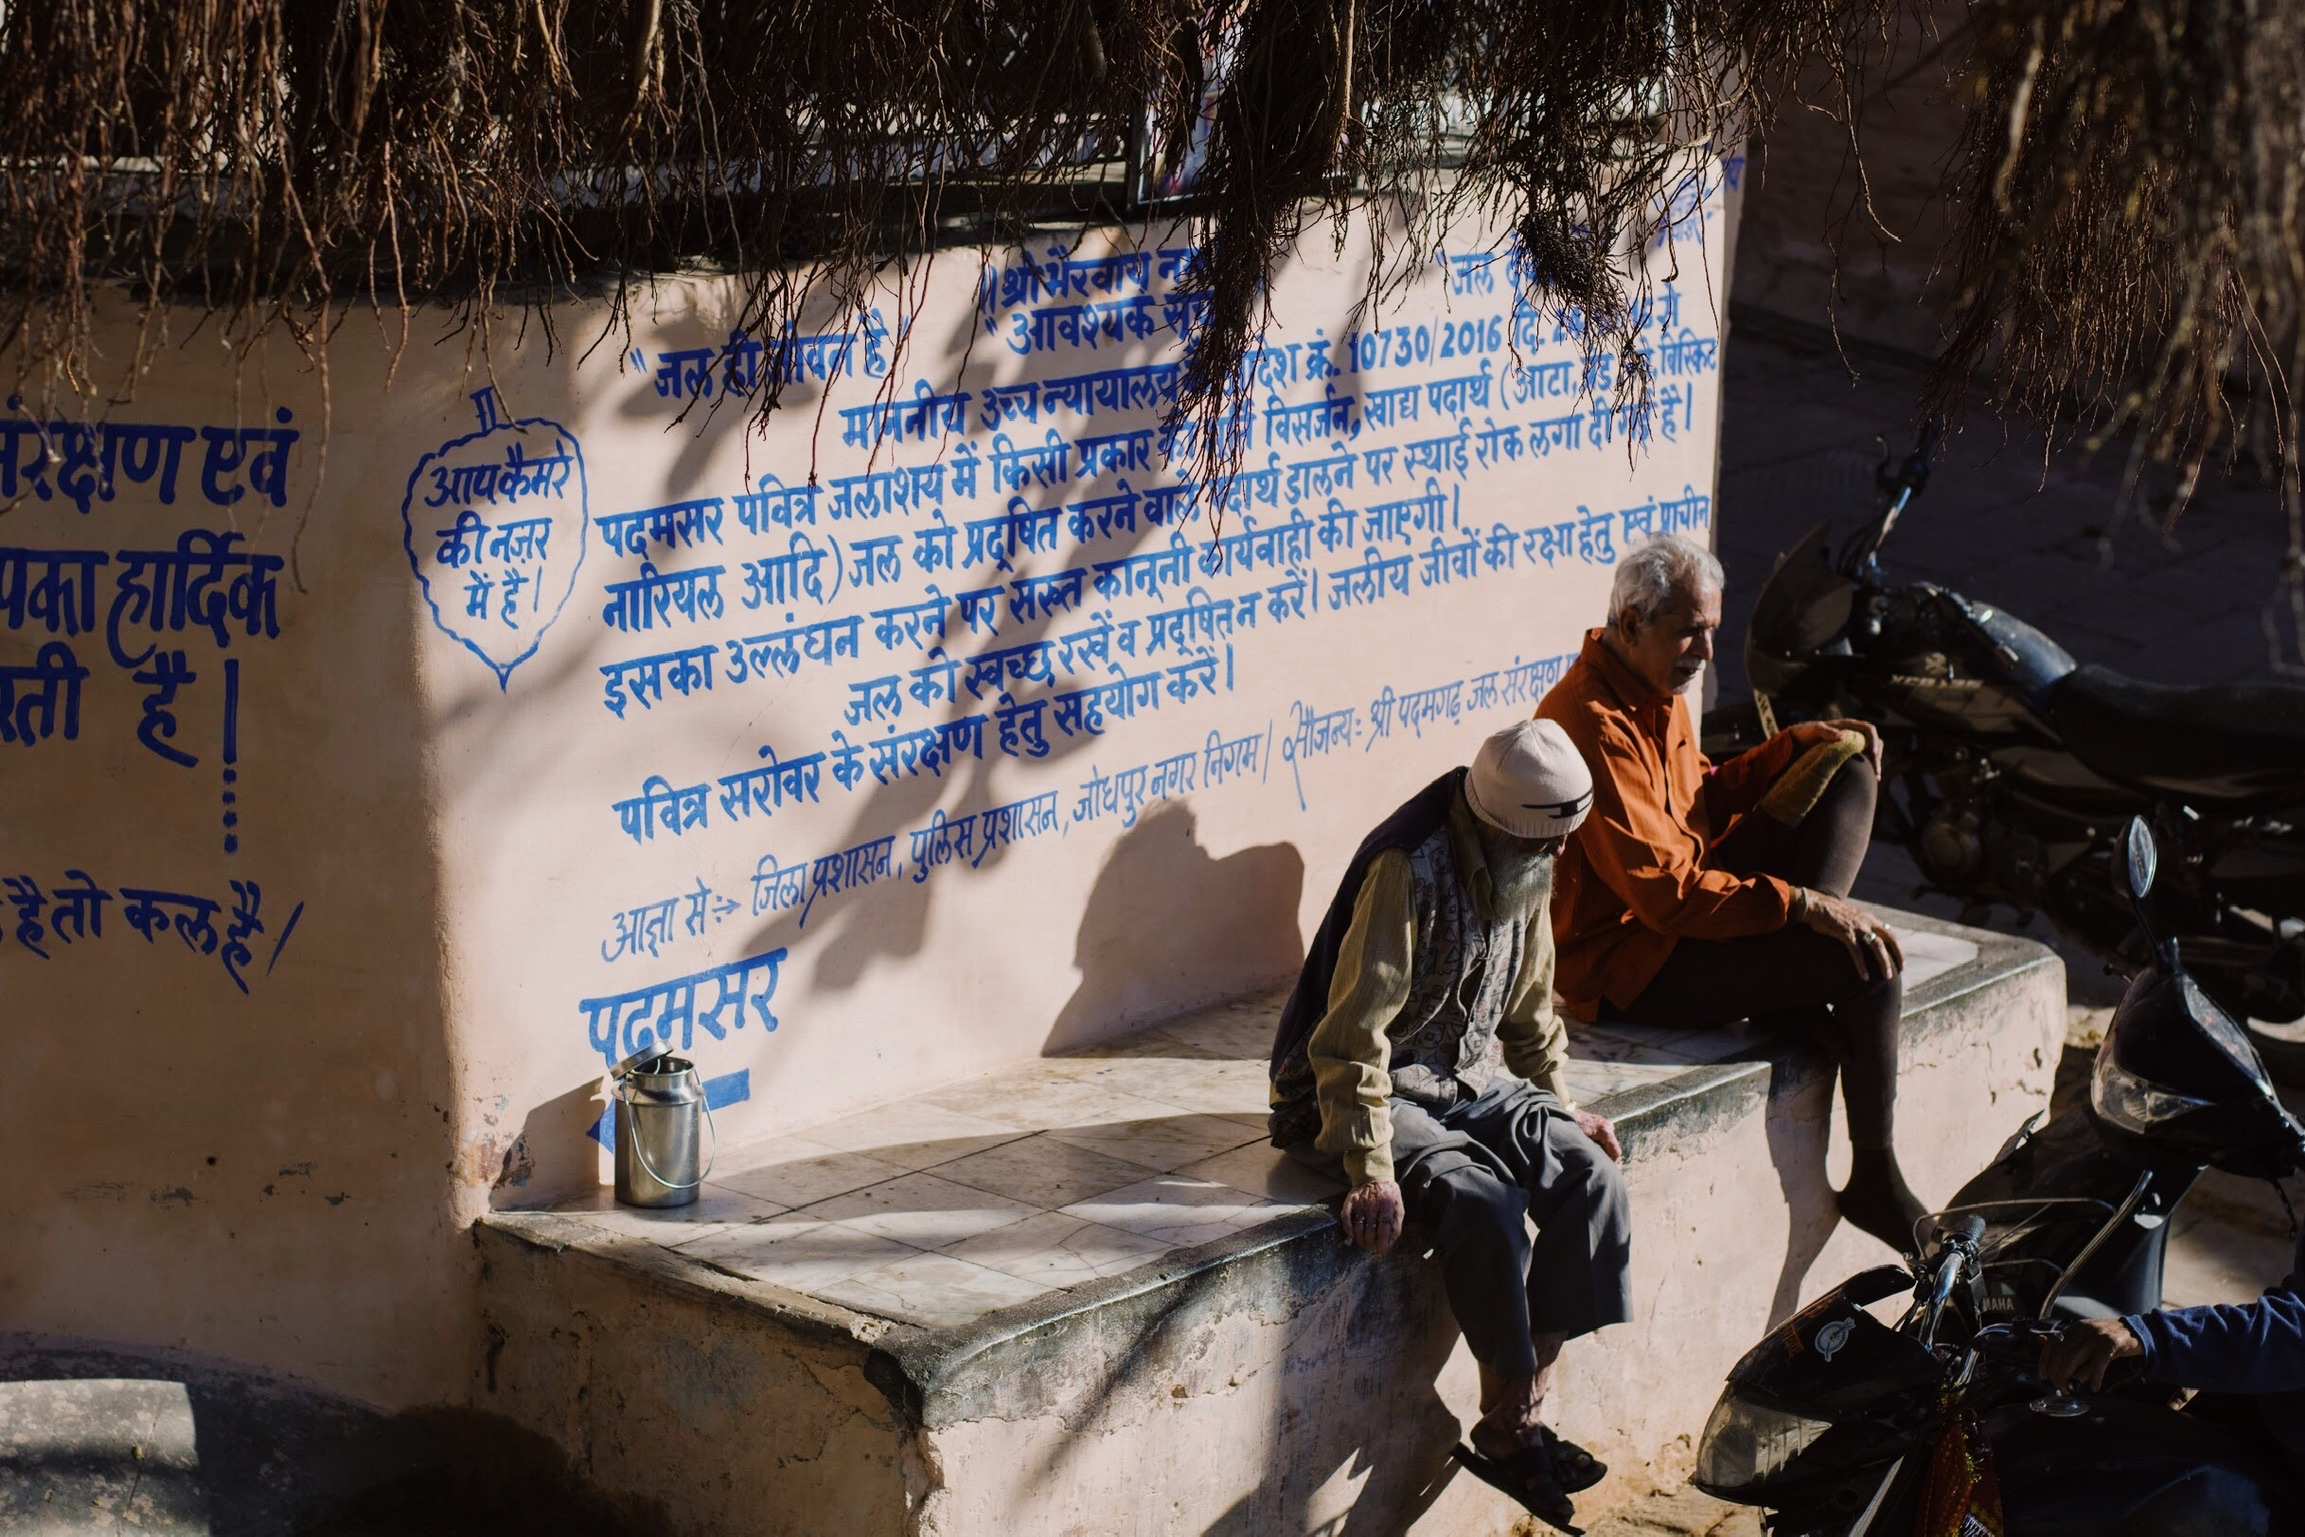 संरक्षण एवं
हार्दिक
है।
है तो कल है।
आप कैमरे
की नज़र
में है।
"जल ही जीवन है"
॥श्री भैरवाय
"आवश्यक
"जल
माननीय उच्च न्यायालय के आदेश क्रं. 10730/2016 दि. से
पदमसर पवित्र जलाशय में किसी प्रकार विसर्जन, खाद्य पदार्थ (आटा, बिस्किट
नारियल आदि) जल को प्रदूषित करने वाले पदार्थ डालने पर स्थाई रोक लगा दी गई है।
इसका उल्लंघन करने पर सख्त कानूनी कार्यवाही की जाएगी।
जल को स्वच्छ रखें व प्रदूषित न करें। जलीय जीवों की रक्षा हेतु एवं प्राचीन
पवित्र सरोवर के संरक्षण हेतु सहयोग करें।
आज्ञा से :-> जिला प्रशासन, पुलिस प्रशासन, जोधपुर नगर निगम। सौजन्य: श्री पदमगढ़ जल संरक्षण
पदमसर
YAMAHA